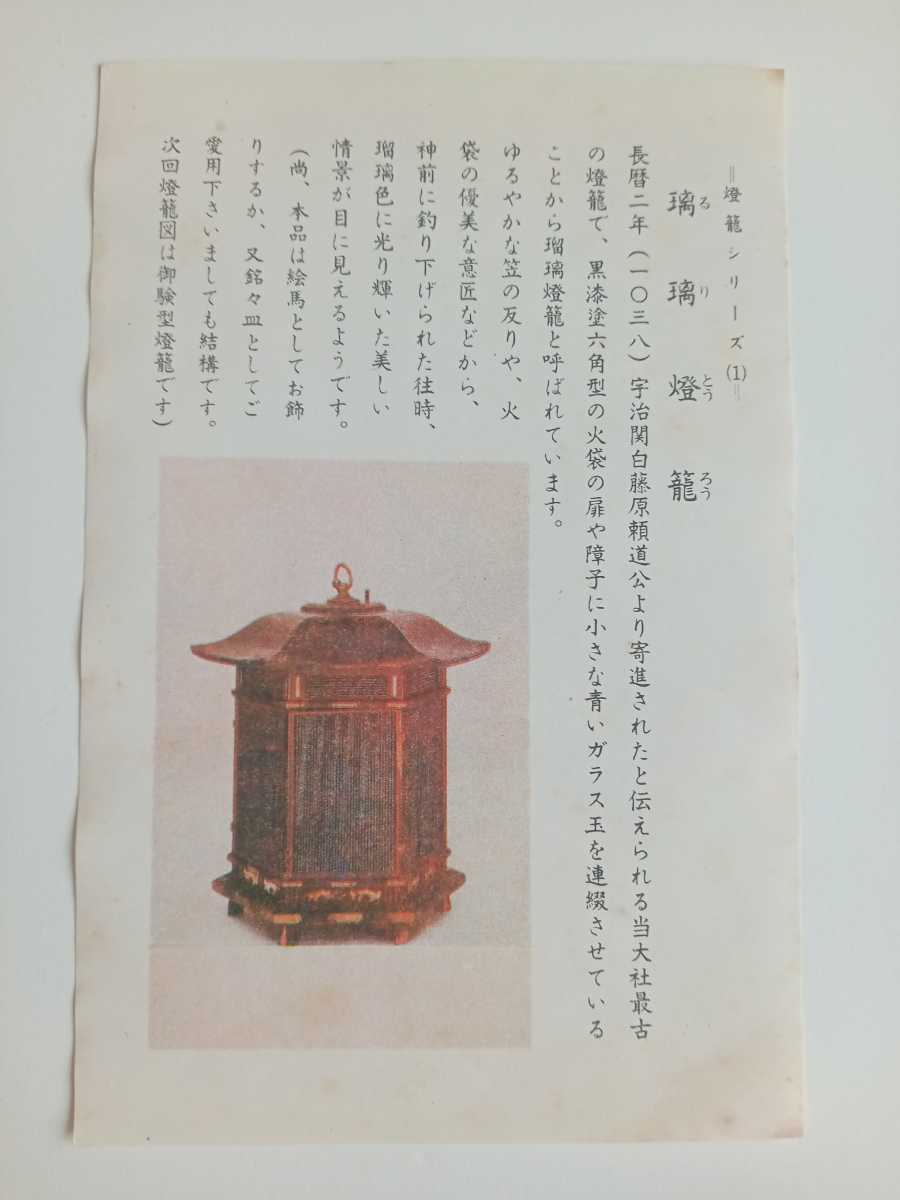 =燈籠シリーズ(1)=
璃璃燈籠
るりとうろう
長暦二年(一〇三八)宇治関白藤原頼道公より寄進されたと伝えられる当大社最古
の燈籠で、黒漆塗六角型の火袋の扉や障子に小さな青いガラス玉を連綴させている
ことから瑠璃燈籠と呼ばれています。
ゆるやかな笠の反りや、火
袋の優美な意匠などから、
神前に釣り下げられた往時、
瑠璃色に光り輝いた美しい
情景が目に見えるようです。
(尚、本品は絵馬としてお飾
りするか、又銘々皿としてご
愛用下さいましても結構です。
次回燈籠図は御験型燈籠です)